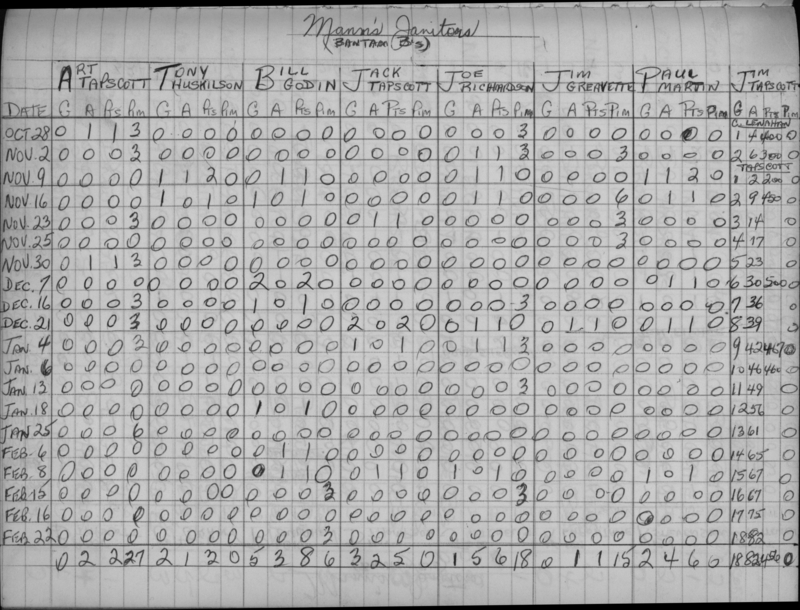 Mann's Janitors
(BANTAM (B's)
ART TAPSCOTT TONY HUSKILSON BILL GODIN JACK TAPSCOTT JOE RICHARDSON JIM GREAVETTE PAUL MARTIN JIM TAPSCOTT
DATE G A Pts Pim G A Pts Pim G A Pts Pim G A Pts Pim G A Pts Pim G A Pts Pim G A Pts Pim G A Pts Pim
C. LENAHAN
OCT 28 0 1 1 3 0 0 0 0 0 0 0 0 0 0 0 0 0 0 0 3 0 0 0 0 0 0 0 0 1 4 400 0
NOV. 2 0 0 0 3 0 0 0 0 0 0 0 0 0 0 0 0 0 1 1 3 0 0 0 3 0 0 0 0 2 6 300 0
TAPSCOTT
NOV. 9 0 0 0 0 1 1 2 0 0 1 1 0 0 0 0 0 0 1 1 0 0 0 0 0 1 1 2 0 1 2 200 0
NOV. 16 0 0 0 0 1 0 1 0 1 0 1 0 0 0 0 0 0 1 1 0 0 0 0 6 0 1 1 0 2 9 450 0
NOV. 23 0 0 0 3 0 0 0 0 0 0 0 0 0 1 1 0 0 0 0 0 0 0 0 3 0 0 0 0 3 14 0
NOV. 25 0 0 0 0 0 0 0 0 0 0 0 0 0 0 0 0 0 0 0 0 0 0 0 3 0 0 0 0 4 17 0
NOV. 30 0 1 1 3 0 0 0 0 0 0 0 0 0 0 0 0 0 0 0 0 0 0 0 0 0 0 0 0 5 23 0
DEC. 7 0 0 0 0 0 0 0 0 2 0 2 0 0 0 0 0 0 0 0 0 0 0 0 0 0 1 1 0 6 30 500 0
DEC. 16 0 0 0 3 0 0 0 0 1 0 1 0 0 0 0 0 0 0 0 3 0 0 0 0 0 0 0 0 7 36 0
DEC. 21 0 0 0 3 0 0 0 0 0 0 0 0 2 0 2 0 0 1 1 0 0 1 1 0 0 1 1 0 8 39 0
JAN. 4 0 0 0 3 0 0 0 0 0 0 0 0 1 0 1 0 0 1 1 3 0 0 0 0 0 0 0 0 9 42 467 0
JAN. 6 0 0 0 0 0 0 0 0 0 0 0 0 0 0 0 0 0 0 0 0 0 0 0 0 0 0 0 0 10 46 460 0
JAN. 13 0 0 0 0 0 0 0 0 0 0 0 0 0 0 0 0 0 0 0 3 0 0 0 0 0 0 0 0 11 49 0
JAN. 18 0 0 0 0 0 0 0 0 1 0 1 0 0 0 0 0 0 0 0 0 0 0 0 0 0 0 0 0 12 56 0
JAN 25 0 0 0 6 0 0 0 0 0 0 0 0 0 0 0 0 0 0 0 0 0 0 0 0 0 0 0 0 13 61 0
FEB. 6 0 0 0 0 0 0 0 0 0 1 1 0 0 0 0 0 0 0 0 0 0 0 0 0 0 0 0 0 14 65 0
FEB. 8 0 0 0 0 0 0 0 0 0 1 1 0 0 1 1 0 1 0 1 0 0 0 0 0 1 0 1 0 15 67 0
FEB. 15 0 0 0 0 0 0 0 0 0 0 0 3 0 0 0 0 0 0 0 3 0 0 0 0 0 0 0 0 16 67 0
FEB. 16 0 0 0 0 0 0 0 0 0 0 0 0 0 0 0 0 0 0 0 0 0 0 0 0 0 0 0 0 17 75 0
FEB. 22 0 0 0 0 0 0 0 0 0 0 0 3 0 0 0 0 0 0 0 0 0 0 0 0 0 0 0 0 18 82 0
0 2 2 27 2 1 3 0 5 3 8 6 3 2 5 0 1 5 6 18 0 1 1 15 2 4 6 0 18 82 456 0